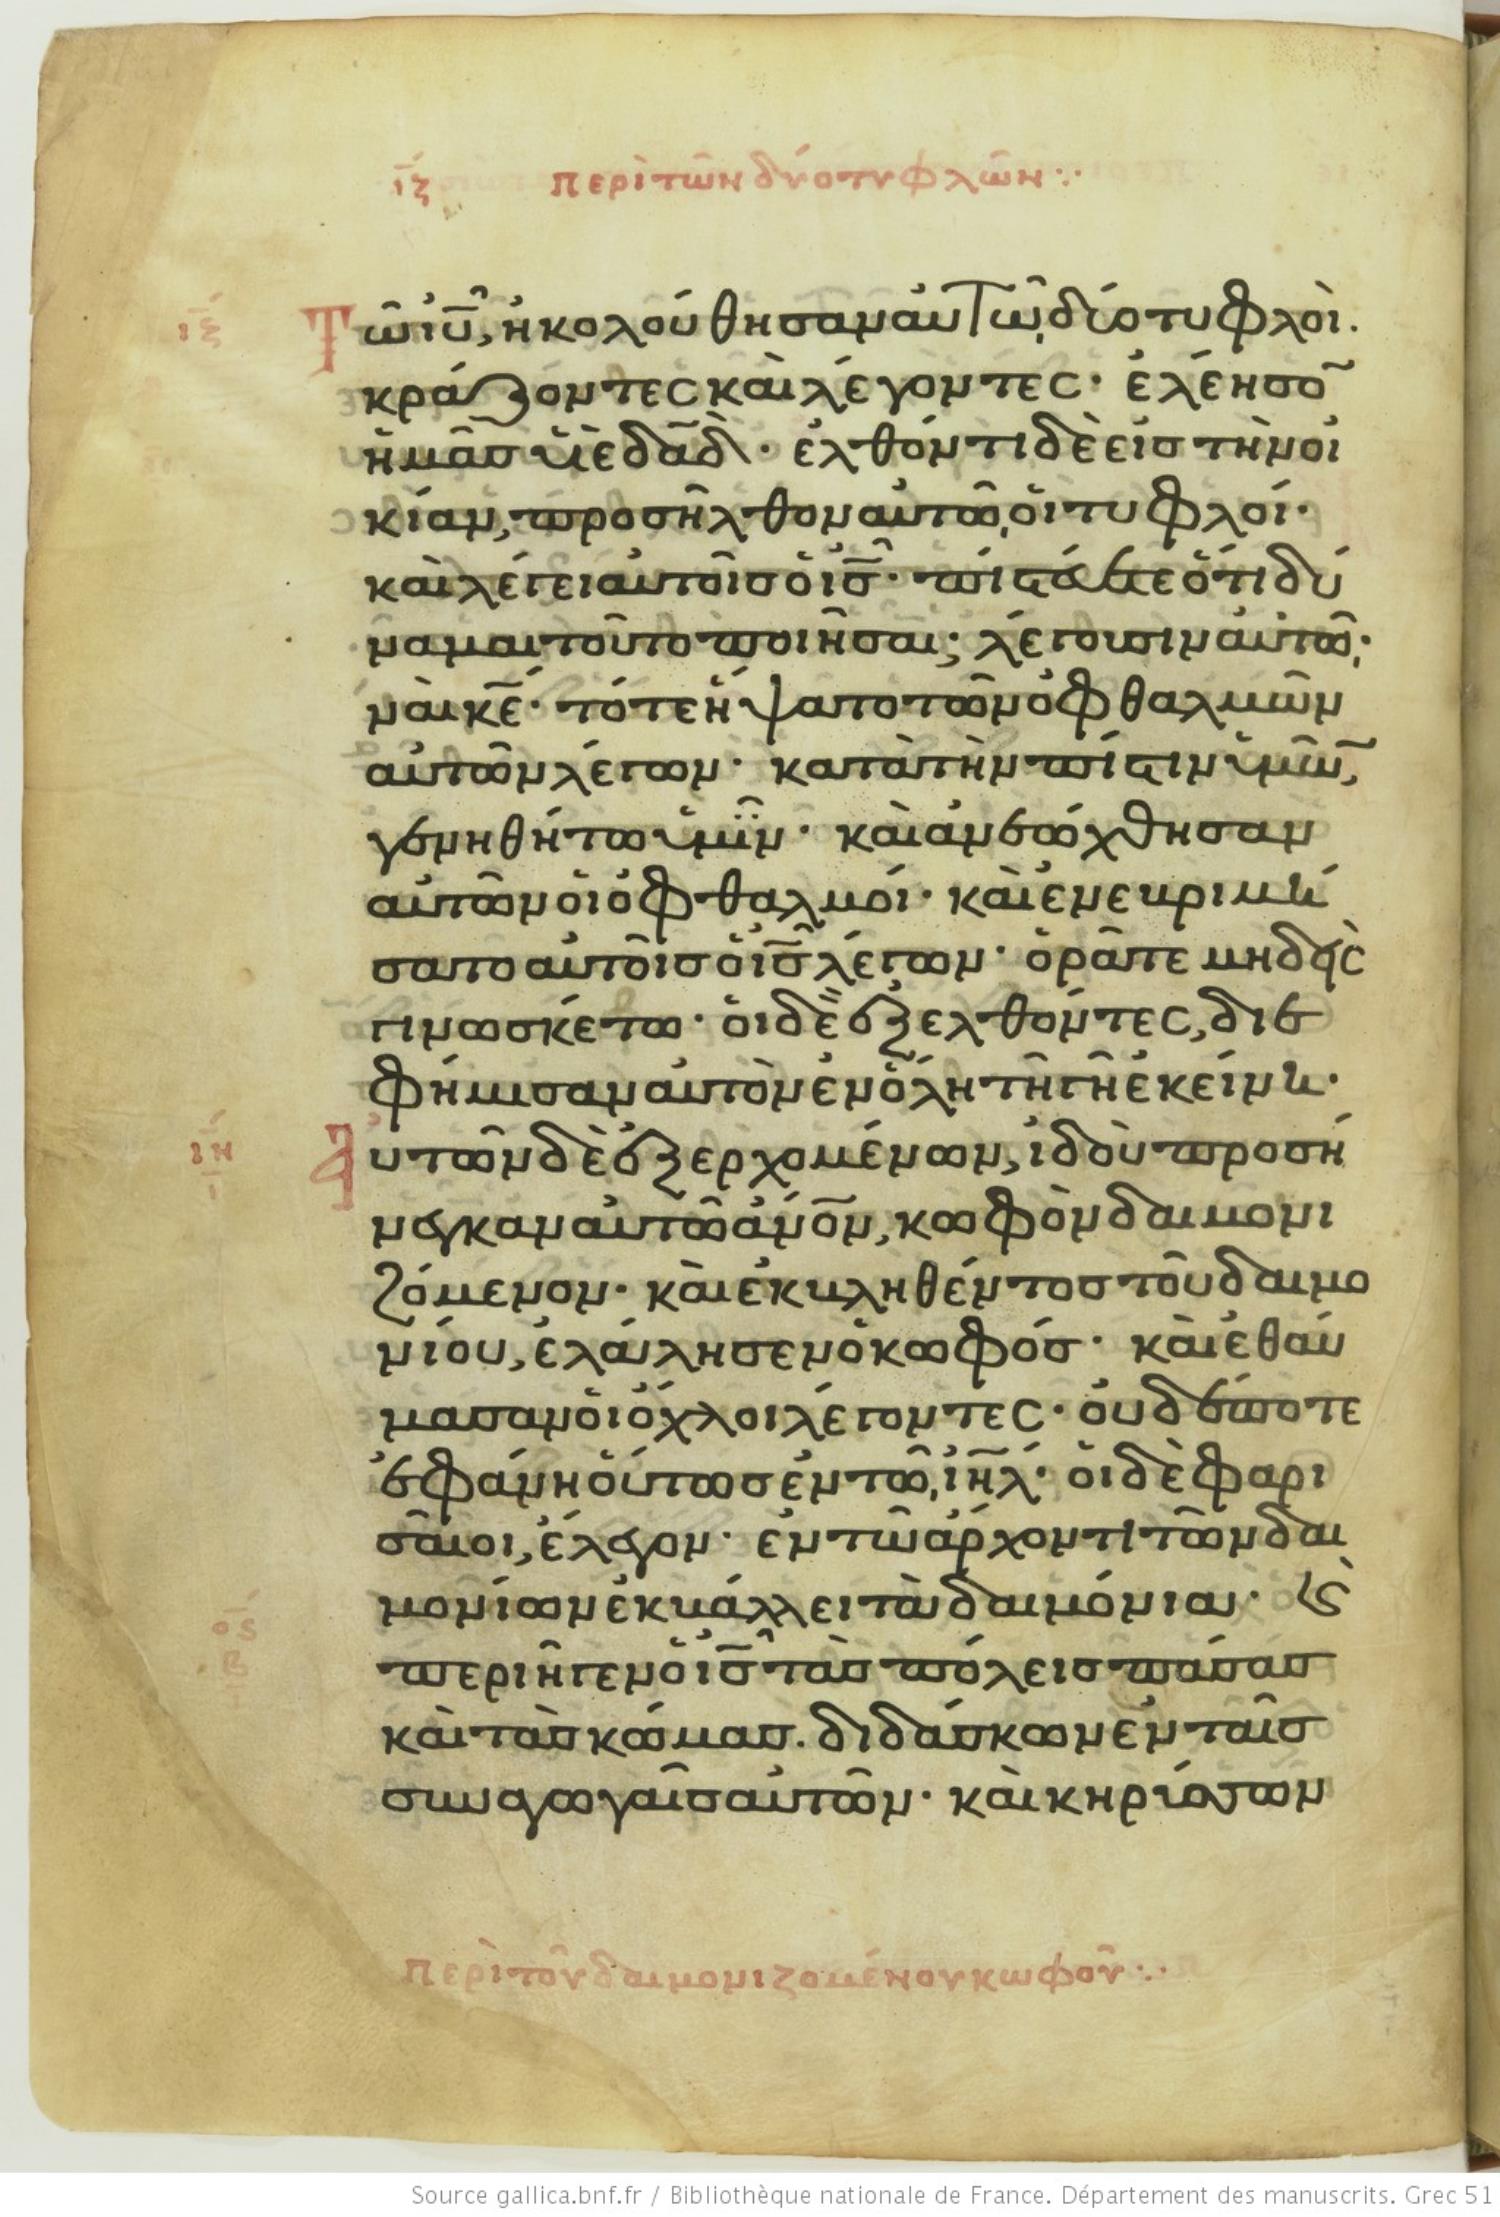 ιζ περὶ τῶν δύο τυφλῶν ⁘
ιζ Τῶ ἰῦ, ἠκολούθησαν αὐτῶ, δύο τυφλοὶ.
κράζοντες καὶ λέγοντες· ἐλέησο̄
ἡμᾶς υἱὲ δᾱδ· ἐλθόντι δὲ εἰς τὴν οἰ
κίαν, προσῆλθον αὐτῶ, οἱ τυφλοί·
καὶ λέγει αὐτοῖς ὁ ἰς̄· πιστεύετε ὅτι δύ
ναμαι τοῦτο ποιῆσαι; λέγουσιν αὐτῶ;
ναὶ κε̄· τότε ἥψατο τῶν ὀφθαλμῶν
αὐτῶν λέγων· κατὰ τὴν πίστιν ὑμῶν,
γενηθήτω ὑμῖν· καὶ ἀνεώχθησαν
αὐτῶν οἱ ὀφθαλμοί· καὶ ἐνεβριμή
σατο αὐτοῖς ὁ ἰς̄ λέγων· ὁρᾶτε μηδεὶς
γινωσκέτω· οἱ δὲ ἐξελθόντες, διε
φήμισαν αὐτὸν ἐν ὅλη τῆ γῆ ἐκείνη·
ιη Αὐτῶν δὲ ἐξερχομένων, ἰδοὺ προσή
ι νεγκαν αὐτῶ ἄνο̄ν, κωφὸν δαιμονι
ζόμενον· καὶ ἐκβληθέντος τοῦ δαιμο
νίου, ἐλάλησεν ὁ κωφός· καὶ ἐθαύ
μασαν οἱ ὄχλοι λέγοντες· οὐδέποτε
ἐφάνη οὕτως ἐν τῶ, ἰη̄λ· οἱ δὲ φαρι
σαῖοι, ἔλεγον· ἐν τῶ ἄρχοντι τῶν δαι
μονίων ἐκβάλλει τὰ δαιμόνια· ϗ
ος
β
περιῆγεν ὁ ἰς̄ τὰς πόλεις πάσας
καὶ τὰς κώμας. διδάσκων ἐν ταῖς
συναγωγαῖς αὐτῶν· καὶ κηρύσσων
περὶ τοῦ δαιμονιζομένου κωφοῦ ⁘
Source gallica.bnf.fr / Bibliothèque nationale de France. Département des manuscrits. Grec 51